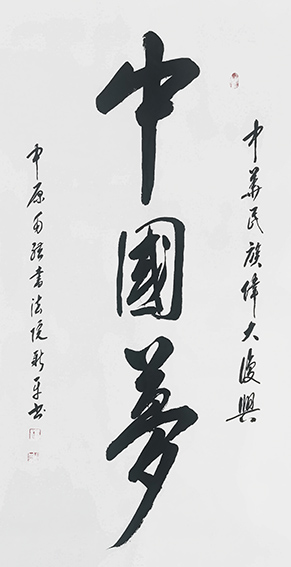 中華民族偉大復興
中國夢
中原自强書法院新平書